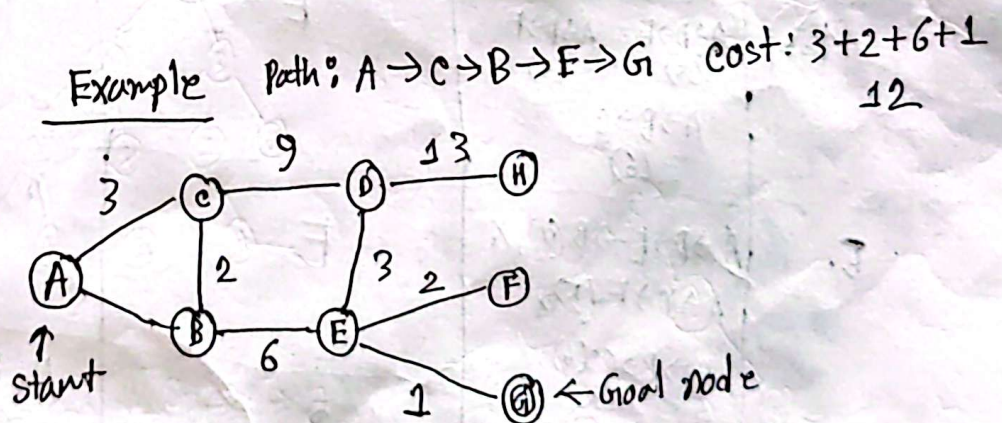 Example Path: A→C→B→E→G cost: 3+2+6+1
12
3 9 13
C D H
A 2 3 2 F
B E
6
Start 1 G ← Goal node